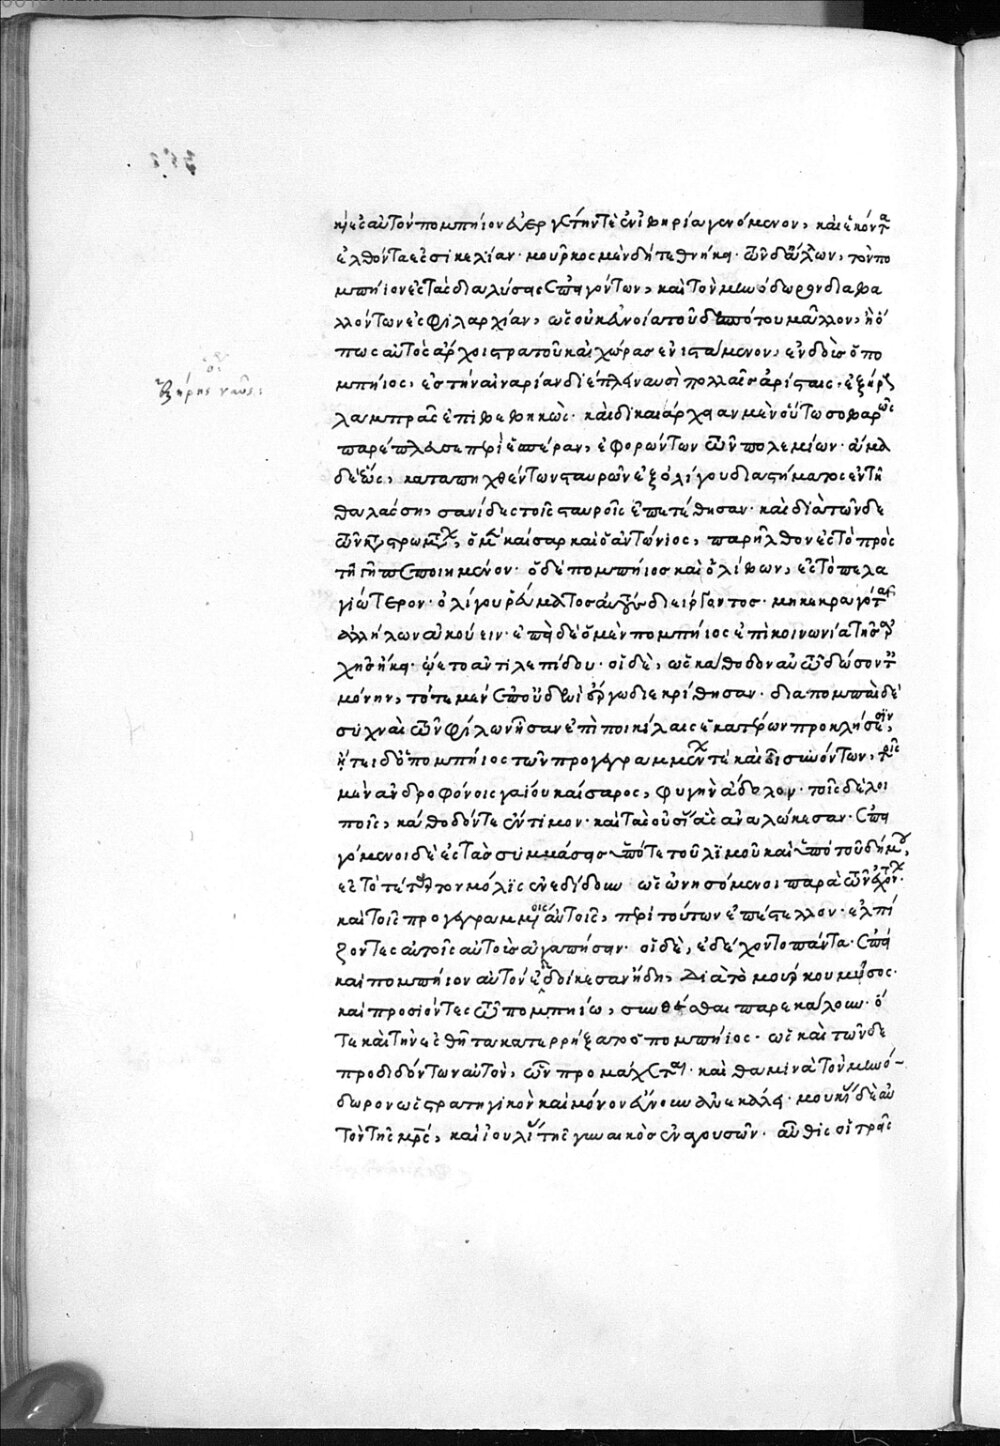 ἑξήρης ναῦς:
κῆς ἐς αὐτὸν πομπήιον εὐεργέτην τε ἐν ἰβηρίᾳ γενόμενον, καὶ ἑκόντα
ἐλθόντα ἐς σικελίαν· μοῦρκος μὲν δὴ τεθνήκει· τῶν δὲ ἄλλων, τὸν πο
μπήιον ἐς τὰς διαλύσεις ἐπαγόντων, καὶ τὸν μηνόδωρον διαβα
λλόντων ἐς φιλαρχίαν, ὡς οὐκ εὐνοίᾳ τοῦ δεσπότου μᾶλλον, ἢ ὅ
πως αὐτὸς ἄρχοι στρατοῦ καὶ χώρας ἐνιστάμενον, ἐνδοὺς ὁ πο
μπήιος, ἐς τὴν αἰναρίαν διέπλει ναυσὶ πολλαῖς ἀρίσταις· ἑξήρους
λαμπρᾶς ἐπιβεβηκώς· καὶ δικαιάρχειαν μὲν οὕτω σοβαρῶς
παρέπλευσε περὶ ἑσπέραν, ἐφορώντων τῶν πολεμίων· ἅμα
δὲ ἕῳ, καταπηχθέντων σταυρῶν ἐξ ὀλίγου διαστήματος ἐν τῇ
θαλάσσῃ, σανίδες τοῖς σταυροῖς ἐπετέθησαν· καὶ διὰ τῶνδε
τῶν καταστρωμάτων, ὁ μὲν καῖσαρ καὶ ὁ ἀντώνιος, παρῆλθον ἐς τὸ πρὸς
τῇ γῇ πεποιημένον· ὁ δὲ πομπήιος καὶ ὁ λίβων, ἐς τὸ πελα
γιώτερον· ὀλίγου ῥεύματος αὐτοὺς διείργοντος· μὴ κεκραγότας
ἀλλήλων ἀκούειν· ἐπεὶ δὲ ὁ μὲν πομπήιος ἐπὶ κοινωνίᾳ τῆς ἀρ
χῆς ἥκειν ᾤετο ἀντὶ λεπίδου· οἱ δὲ, ὡς κάθοδον αὐτῷ δώσοντες
μόνην, τότε μὲν ἐπ᾽ οὐδενὶ ἔργῳ διεκρίθησαν· διαπομπαὶ δὲ
συχναὶ τῶν φίλων ἦσαν ἐπὶ ποικίλαις ἑκατέρων προκλήσεσιν,
ᾔτει δ᾽ ὁ πομπήιος τῶν προγεγραμμένων τε καὶ οἱ συνόντων, τοῖς
μὲν ἀνδροφόνοις γαΐου καίσαρος, φυγὴν ἄδειαν· τοῖς δὲ λοι
ποῖς, κάθοδόν τε ἔντιμον· καὶ τὰς οὐσίας ἃς ἀναλώκεσαν· ἐπει
γόμενοι δὲ ἐς τὰς συμβάσεις ὑπό τε τοῦ λιμοῦ καὶ ὑπὸ τοῦ δήμου,
ἐς τὸ τέταρτον μόλις ἐνεδίδουν ὡς ὠνησόμενοι παρὰ τῶν ἐχόντων·
καὶ τοῖς προγεγραμμένοις αὐτοῖς, περὶ τούτων ἐπέστελλον· ἐλπί
ζοντες αὐτοῖς αὐτοὺς ἀγαπήσειν· οἱ δὲ, ἐδέχοντο πάντα· ἐπεὶ
καὶ πομπήιον αὐτὸν ἐδεδοίκεσαν ἤδη, διὰ τὸ μούρκου μῦσος·
καὶ προσιόντες τῷ πομπηίῳ, συνθέσθαι παρεκάλουν· ὅ
τε καὶ τὴν ἐσθῆτα κατερρήξατο ὁ πομπήιος· ὡς καὶ τῶνδε
προδιδόντων αὐτὸν, ὧν προμάχεται· καὶ θαμινὰ τὸν μηνό-
δωρον ὡς στρατηγικὸν καὶ μόνον εὔνουν ἀνεκάλει· μουκίας δὲ αὐ
τὸν τῆς μητρός, καὶ ἰουλίας τῆς γυναικὸς ἐναγουσῶν· αὖθις οἱ τρεῖς